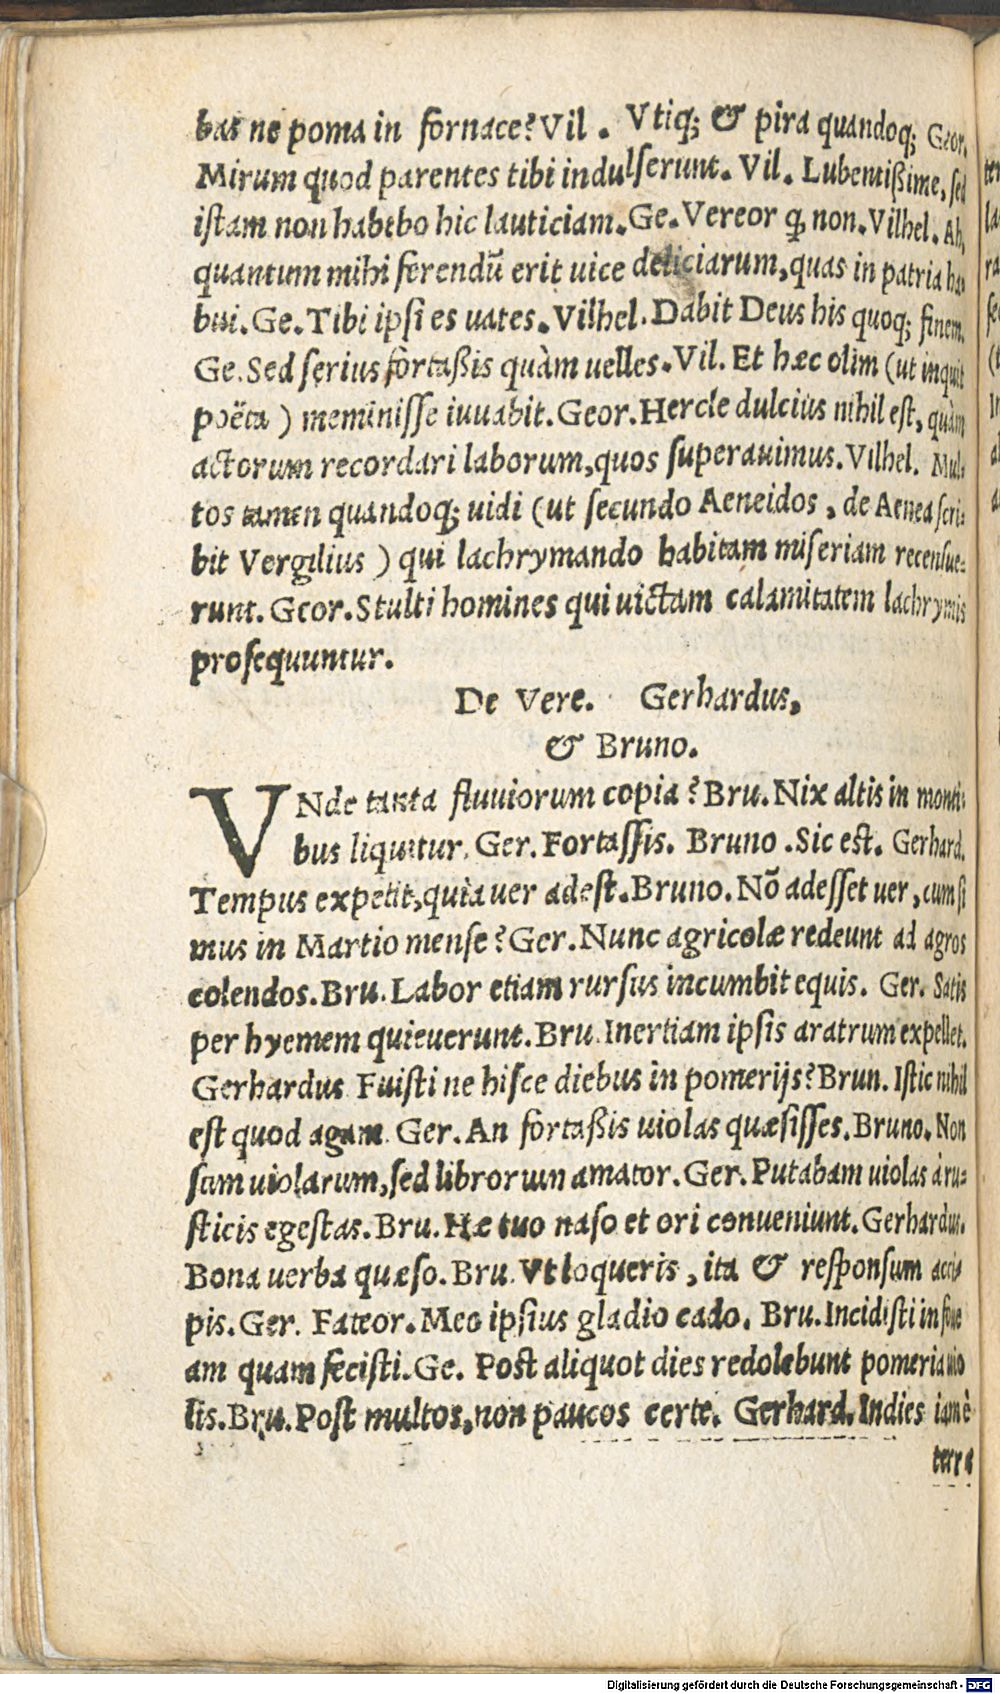 bas ne poma in fornace? Vil. Vtiq; & pira quandoq; Geor.
Mirum quod parentes tibi indulserunt. Vil. Lubentißime, sed
istam non habebo hic lauticiam. Ge. Vereor q̃ non. Vilhel. Ah,
quantum mihi ferendũ erit uice deliciarum, quas in patria ha-
bui. Ge. Tibi ipsi es uates. Vilhel. Dabit Deus his quoq; finem.
Ge. Sed serius fortaßis quàm uelles. Vil. Et hæc olim (ut inquit
poëta) meminisse iuuabit. Geor. Hercle dulcius nihil est, quàm
actorum recordari laborum, quos superauimus. Vilhel. Mul-
tos tamen quandoq; uidi (ut secundo Aeneidos, de Aenea scri-
bit Vergilius) qui lachrymando habitam miseriam recensue-
runt. Geor. Stulti homines qui uictam calamitatem lachrymis
prosequuntur.
De Vere. Gerhardus,
& Bruno.
VNde tanta fluuiorum copia? Bru. Nix altis in monti-
bus liquitur. Ger. Fortassis. Bruno. Sic est. Gerhard.
Tempus expetit, quia uer adest. Bruno. Nõ adesset uer, cum si
mus in Martio mense? Ger. Nunc agricolæ redeunt ad agros
colendos. Bru. Labor etiam rursus incumbit equis. Ger. Satis
per hyemem quieuerunt. Bru. Inertiam ipsis aratrum expellet.
Gerhardus Fuisti ne hisce diebus in pomerijs? Brun. Istic nihil
est quod agam. Ger. An fortaßis uiolas quæsisses. Bruno. Non
sum uiolarum, sed librorum amator. Ger. Putabam uiolas à ru-
sticis egestas. Bru. Hæ tuo naso et ori conueniunt. Gerhardus.
Bona uerba quæso. Bru. Vt loqueris, ita & responsum acci-
pis. Ger. Fateor. Meo ipsius gladio cado. Bru. Incidisti in foue
am quam fecisti. Ge. Post aliquot dies redolebunt pomeria uio
lis. Bru. Post multos, non paucos certe. Gerhard. Indies iam è
terra
Digitalisierung gefördert durch die Deutsche Forschungsgemeinschaft - DFG